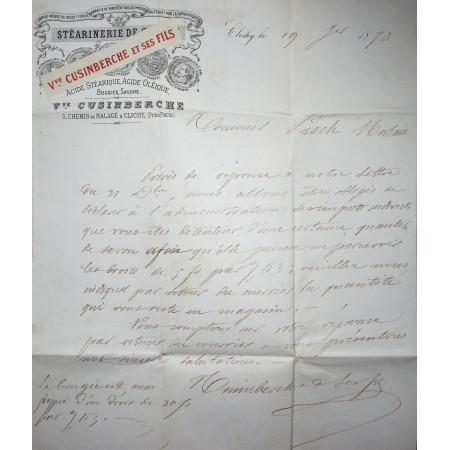 STÉARINERIE DE
Vve CUSINBERCHE ET SES FILS
ACIDE STÉARIQUE, ACIDE OLÉIQUE,
BOUGIES, SAVONS.
Vve CUSINBERCHE
5, CHEMIN DE HALAGE à CLICHY, (Près Paris)
Clichy le 19 Jer 1873
Monsieur
de réponse à notre lettre
du 31 Dbre nous allons être obligés de
déclarer à l'administration
que vous êtes détenteur d'une certaine quantité
de savon afin qu'elle puisse en percevoir
les droits de 5 f par % Ks; veuillez nous
indiquer par retour du courrier la quantité
qui vous reste en magasin. —
Nous comptons sur votre réponse
par retour du courrier & vous présentons
nos sincères salutations. —
La bougie est aussi
d'un droit de 30 f
par % Ks.